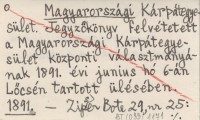 a Magyarországi Kárpátegye-
sület. Jegyzőkönyv felvétetett
a Magyarországi Kárpátegye-
sület központi választmányá-
nak 1891. évi junius hó 6-án
Lőcsén tartott ülésében.
1891. — Zipser Byte 29, nr 25: